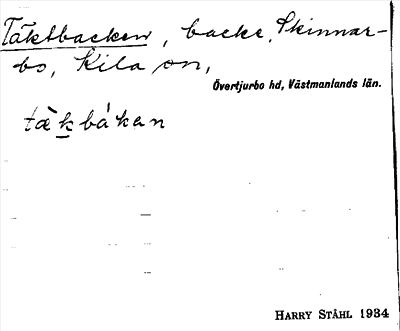 Täktbacken, backe, Skinnar-
bo, Kila sn,
Övertjurbo hd, Västmanlands län.
tàkbákan
HARRY STÅHL 1934